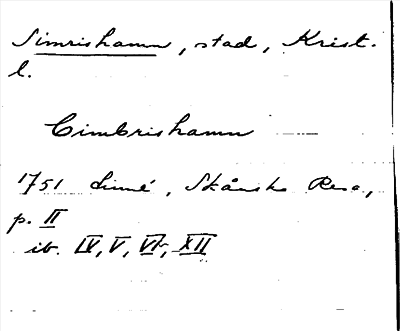 Simrishamn, stad, Krist.
l.
Cimbrishamn
1751 Linné, Skånska Resa,
p. II
ib. IV, V, VI, XII